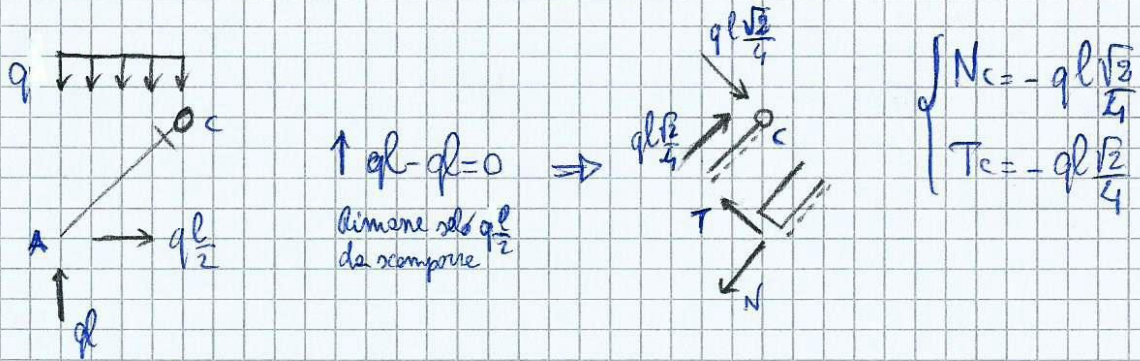 q
C
A
q l/2
ql
↑ ql - ql = 0 ⇒
Rimane solo q l/2
da scomporre
ql √2/4
ql √2/4
C
T
N
{ Nc = - ql √2/4
Tc = - ql √2/4